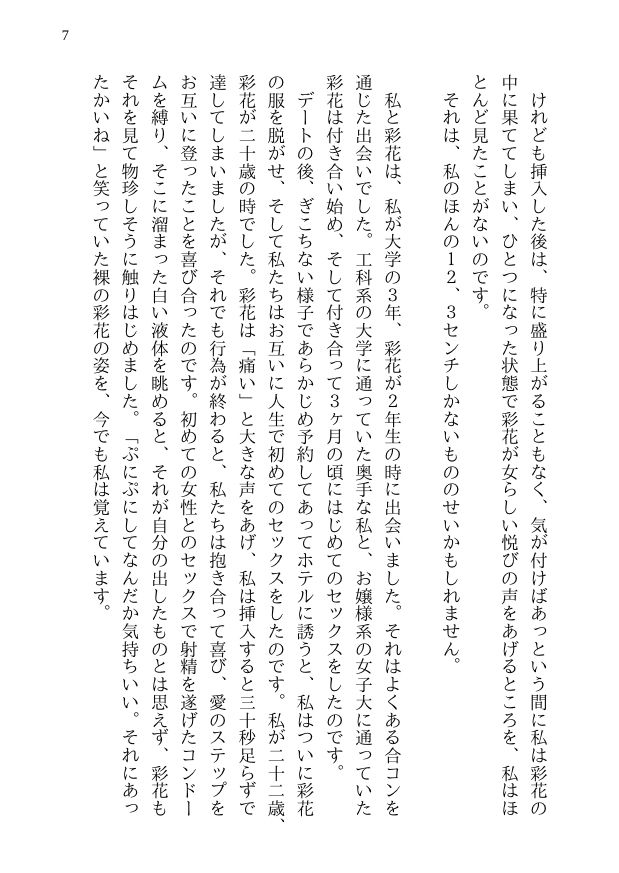 7
けれども挿入した後は、特に盛り上がることもなく、気が付けばあっという間に私は彩花の
中に果ててしまい、ひとつになった状態で彩花が女らしい悦びの声をあげるところを、私はほ
とんど見たことがないのです。
それは、私のほんの１２、３センチしかないもののせいかもしれません。
私と彩花は、私が大学の３年、彩花が２年生の時に出会いました。それはよくある合コンを
通じた出会いでした。工科系の大学に通っていた奥手な私と、お嬢様系の女子大に通っていた
彩花は付き合い始め、そして付き合って３ヶ月の頃にはじめてのセックスをしたのです。
デートの後、ぎこちない様子であらかじめ予約してあってホテルに誘うと、私はついに彩花
の服を脱がせ、そして私たちはお互いに人生で初めてのセックスをしたのです。私が二十二歳、
彩花が二十歳の時でした。彩花は「痛い」と大きな声をあげ、私は挿入すると三十秒足らずで
達してしまいましたが、それでも行為が終わると、私たちは抱き合って喜び、愛のステップを
お互いに登ったことを喜び合ったのです。初めての女性とのセックスで射精を遂げたコンドー
ムを縛り、そこに溜まった白い液体を眺めると、それが自分の出したものとは思えず、彩花も
それを見て物珍しそうに触りはじめました。「ぷにぷにしてなんだか気持ちいい。それにあっ
たかいね」と笑っていた裸の彩花の姿を、今でも私は覚えています。